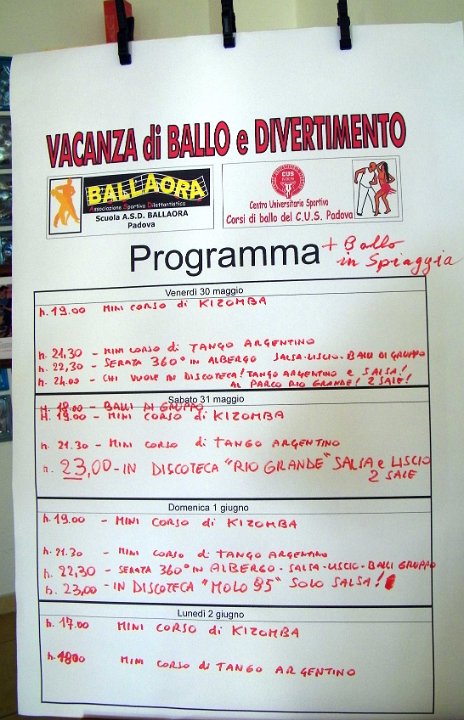 VACANZA di BALLO e DIVERTIMENTO
BALLAORA
Associazione Sportiva Dilettantistica
Scuola A.S.D. BALLAORA
Padova
CUS
PADOVA
Centro Universitario Sportivo
Corsi di ballo del C.U.S. Padova
Programma + Ballo
in Spiaggia
Venerdì 30 maggio
h. 19.00 MINI CORSO di KIZOMBA
h. 21,30 - MINI CORSO di TANGO ARGENTINO
h. 22,30 - SERATA 360° IN ALBERGO SALSA-LISCIO-BALLI DI GRUPPO
h. 24.00 - CHI VUOLE IN DISCOTECA! TANGO ARGENTINO e SALSA!
AL PARCO RIO GRANDE! 2 SALE!
Sabato 31 maggio
H. 18.00 - BALLI DI GRUPPO
H. 19.00 - MINI CORSO di KIZOMBA
h. 21.30 - MINI CORSO di TANGO ARGENTINO
h. 23,00 - IN DISCOTECA "RIO GRANDE" SALSA e LISCIO
2 SALE
Domenica 1 giugno
h. 19.00 - MINI CORSO di KIZOMBA
h. 21.30 - MINI CORSO di TANGO ARGENTINO
h. 22,30 - SERATA 360° IN ALBERGO - SALSA-LISCIO-BALLI GRUPPO
h. 23,00 - IN DISCOTECA "MOLO 95" SOLO SALSA!
Lunedì 2 giugno
h. 17.00 MINI CORSO di KIZOMBA
h. 18.00 MINI CORSO di TANGO ARGENTINO